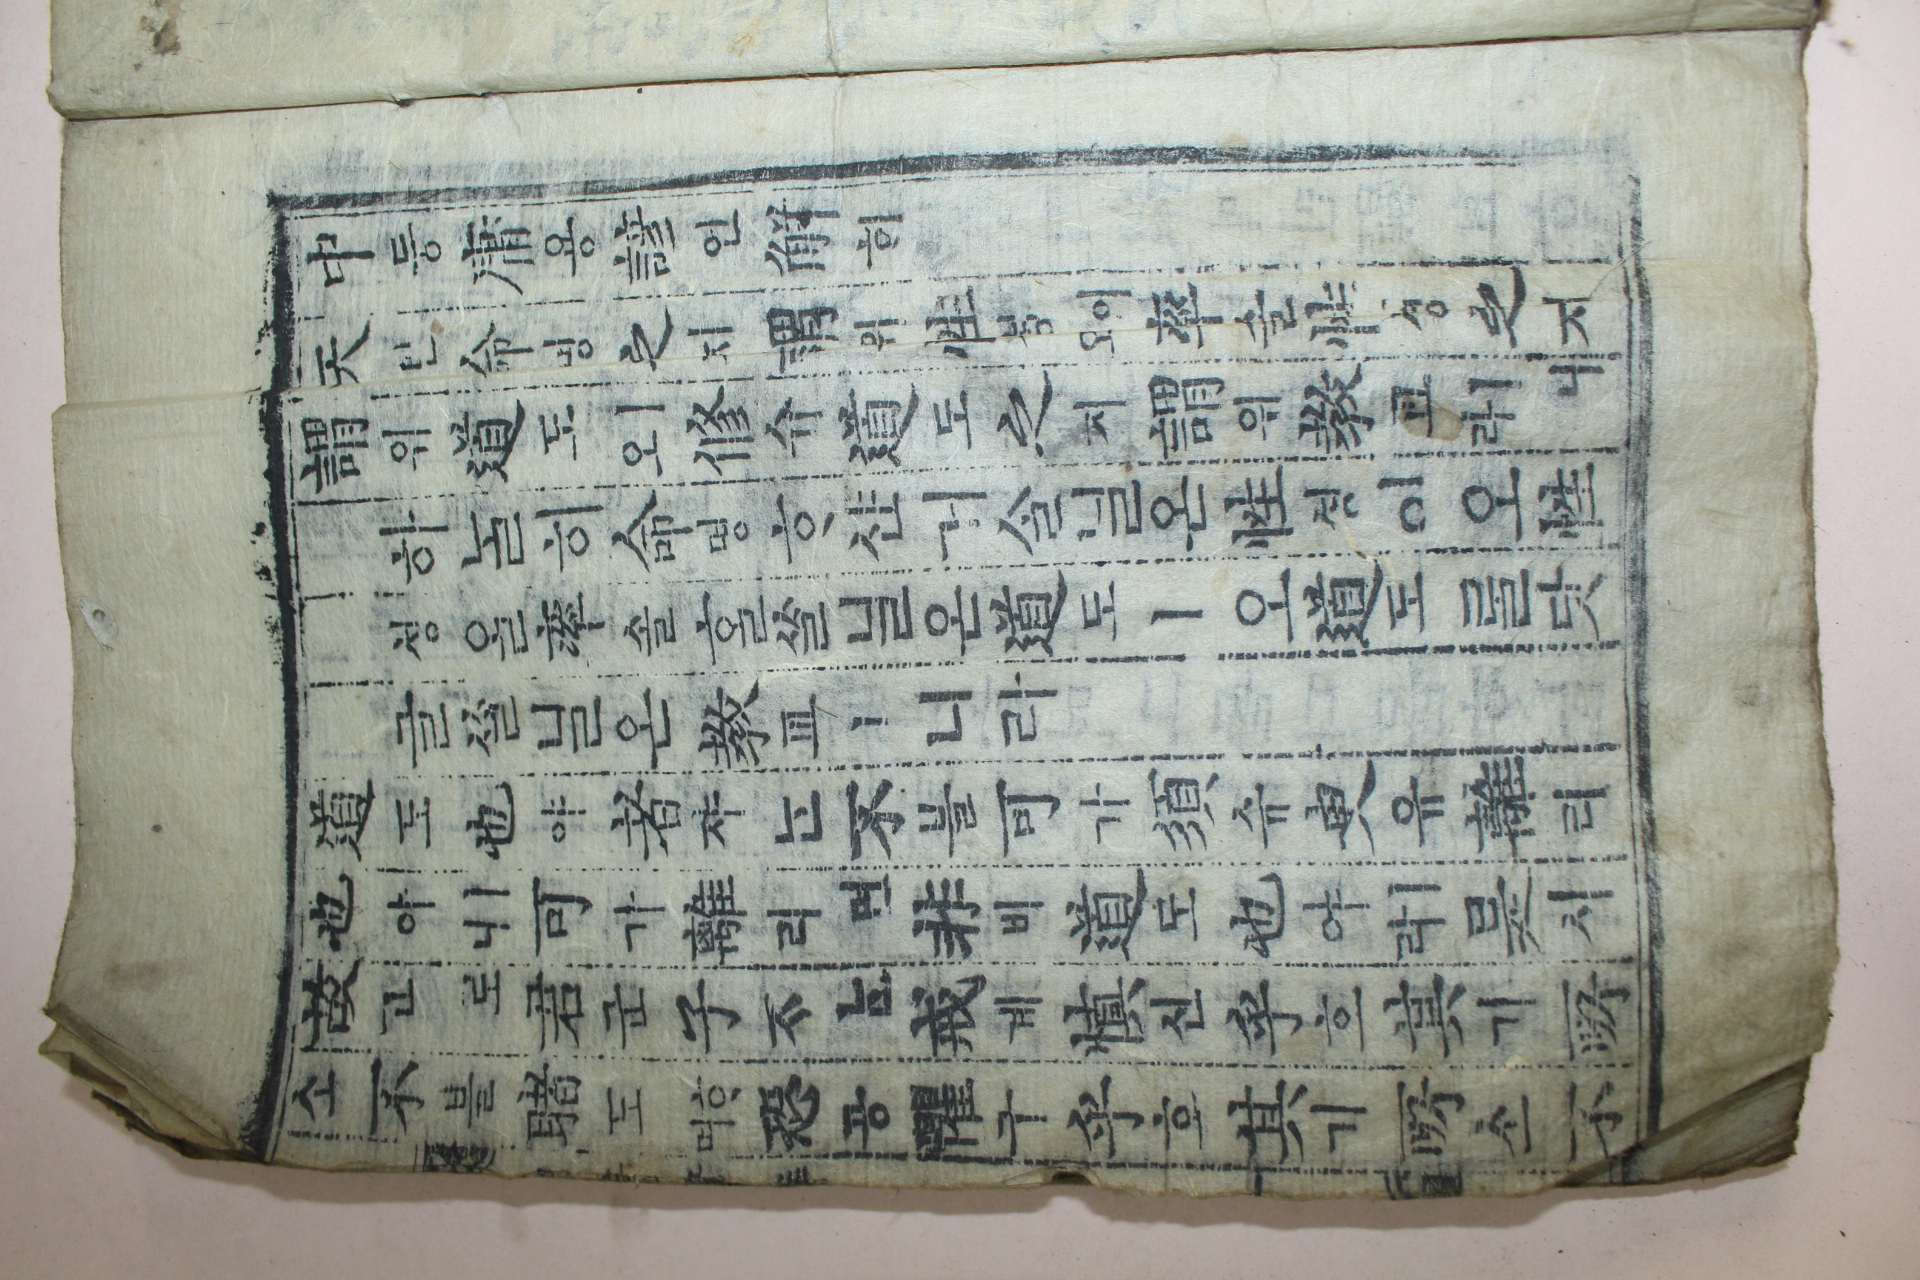 中듕庸용諺언解ᄒᆡ
天텬命명之지謂위性셩이오率솔性셩之지
謂위道도ㅣ오修슈道도之지謂위敎교ㅣ니라
하ᄂᆞᆯ히命명ᄒᆞ샨거ᄉᆞᆯ닐온性셩이오性
셩을率솔ᄒᆞᆯᄊᆞᆯ닐온道도ㅣ오道도를닷
글ᄊᆞᆯ닐온敎교ㅣ니라
道도也야者쟈ᄂᆞᆫ不블可가須슈臾유離리
也야ㅣ니可가離리면非비道도也야ㅣ라是시
故고로君군子ᄌᆞᄂᆞᆫ戒계愼신乎호其기所
소不블睹도ᄒᆞ며恐공懼구乎호其기所소不